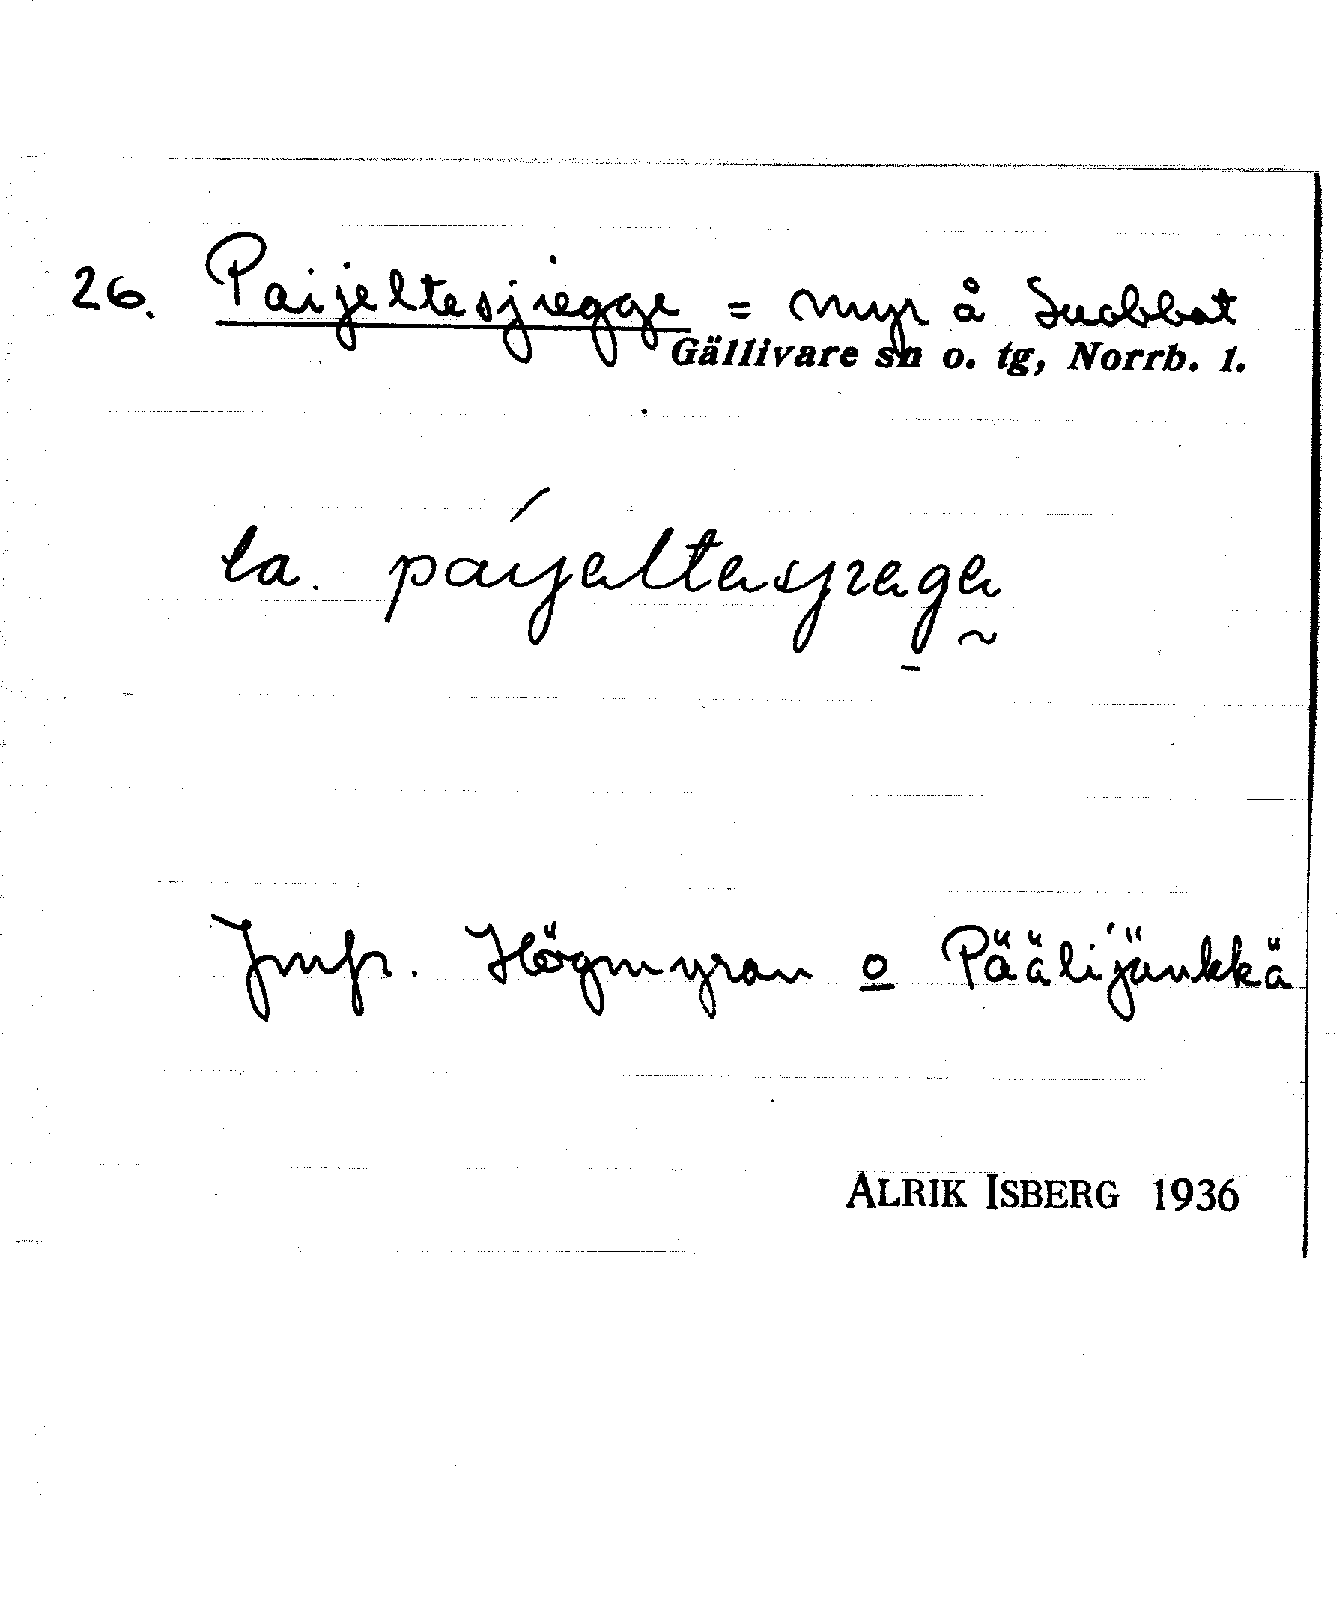 26. Paijeltesjiegge = myr å Suobbat
Gällivare sn o. tg, Norrb. 1.
la. páijeltesjrega
Jmfr. Högmyran o Päälijänkkä
ALRIK ISBERG 1936